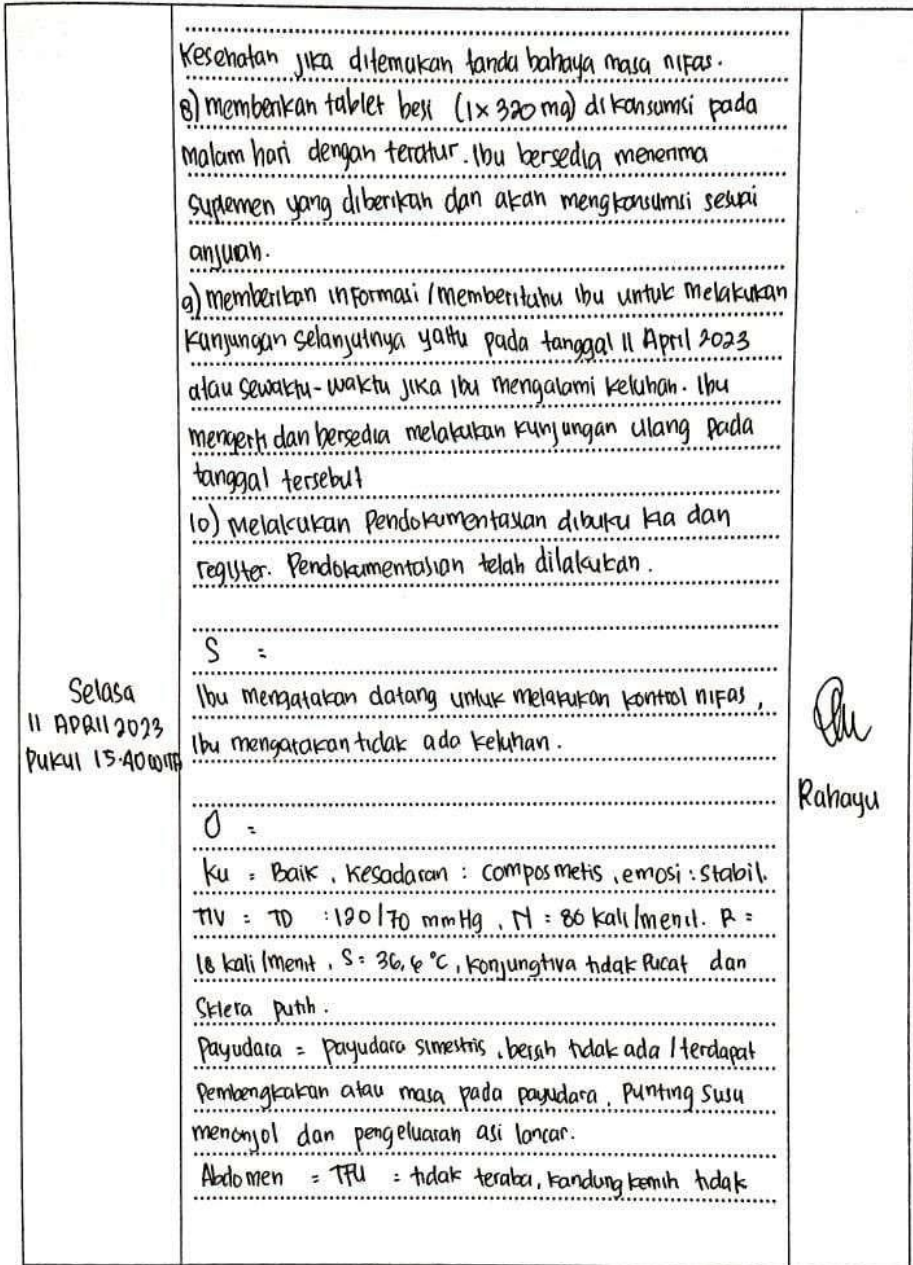 Kesehatan jika ditemukan tanda bahaya masa nifas.
8) memberikan tablet besi (1x 320 mg) di konsumsi pada
malam hari dengan teratur. Ibu bersedia menerima
suplemen yang diberikan dan akan mengkonsumsi sesuai
anjuran.
9) memberikan informasi / memberitahu ibu untuk melakukan
kunjungan selanjutnya yaitu pada tanggal 11 April 2023
atau sewaktu-waktu jika ibu mengalami keluhan. Ibu
mengerti dan bersedia melakukan kunjungan ulang pada
tanggal tersebut
10) Melakukan Pendokumentasian dibuku kia dan
register. Pendokumentasian telah dilakukan.
S :
Selasa
11 APRIl 2023
Pukul 15.40 WITA
Ibu mengatakan datang untuk melakukan kontrol nifas,
Ibu mengatakan tidak ada keluhan.
Rahayu
O :
Ku = Baik, Kesadaran : composmetis, emosi : stabil.
TTV : TD : 120/70 mmHg, N : 86 kali/menit. R =
18 kali/menit, S = 36,6 °C, konjungtiva tidak Pucat dan
Sklera putih.
Payudara = payudara simestris, bersih tidak ada / terdapat
Pembengkakan atau masa pada payudara, Punting Susu
menonjol dan pengeluaran asi lancar.
Abdomen = TFU = tidak teraba, kandung kemih tidak